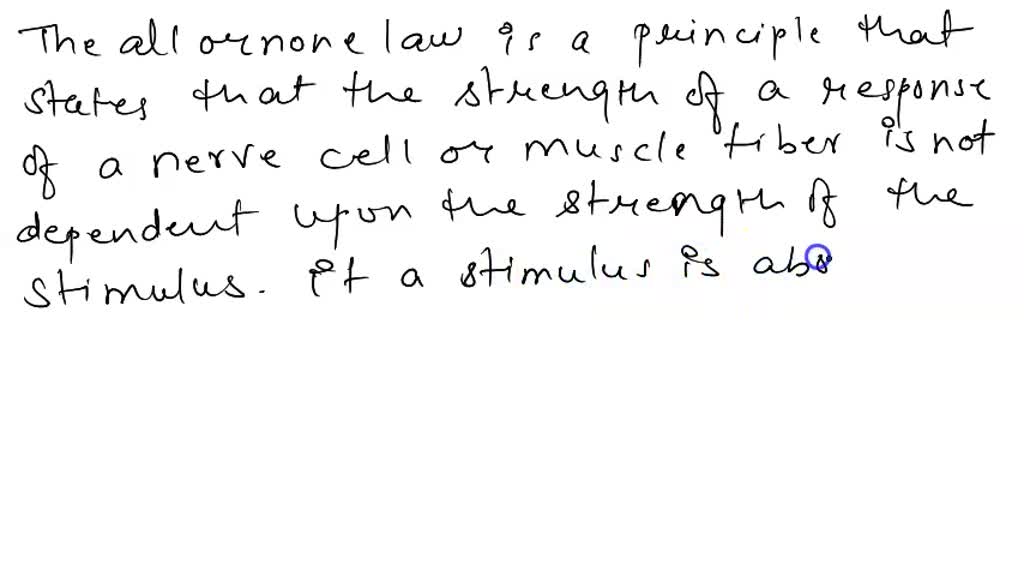 The all or none law is a principle that
states that the strength of a response
of a nerve cell or muscle fiber is not
dependent upon the strength of the
stimulus. if a stimulus is abo